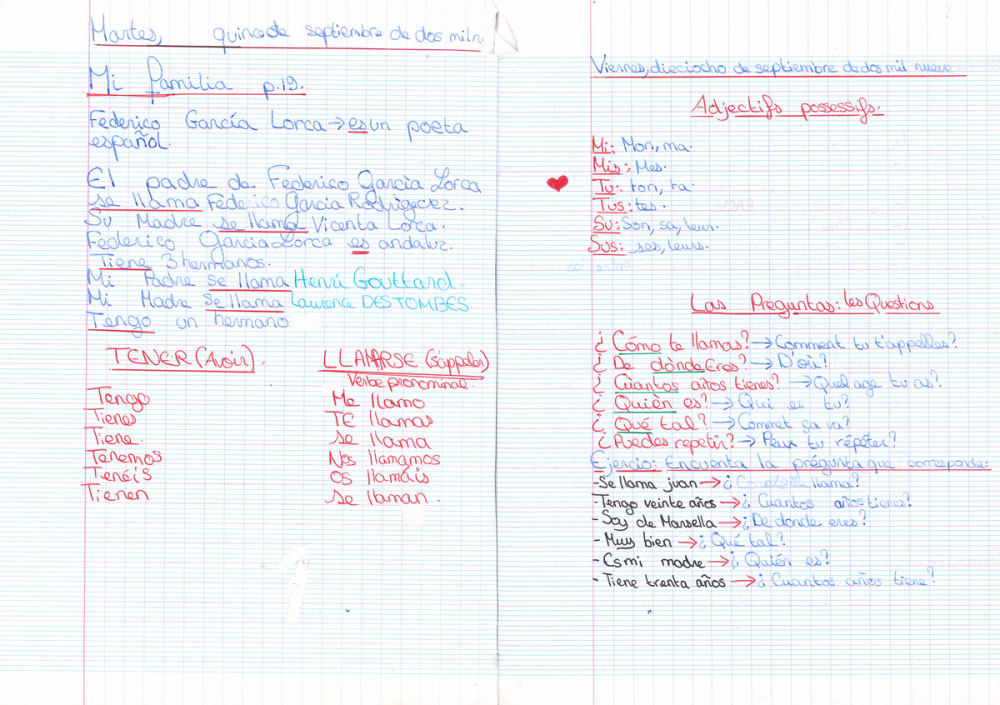 Martes, quince de septiembre de dos mil n
Mi Familia p.19.
Federico García Lorca → es un poeta
español.
El padre de Federico García Lorca
se llama Féderico García Rodrigez.
Su Madre se llama Vicenta Lorca.
Federico García Lorca es andaluz.
Tiene 3 hermanos.
Mi Padre se llama Henri Gouttard.
Mi Madre se llama Laurence DESTOMBES
Tengo un hermano
TENER (Avoir).
Tengo
Tienes
Tiene.
Tenemos
Tenéis
Tienen
LLAMARSE (s'appeler)
Verbe pronominal.
Me llamo
TE llamas
se llama
Nos llamamos
Os llamáis
se llaman.
Viernes, dieciocho de septiembre de dos mil nueve
Adjectifs possessifs.
Mi: Mon, ma.
Mis: Mes.
Tu: ton, ta.
Tus: tes.
Su: Son, sa, leur.
Sus: ses, leurs.
Las Preguntas: les Questions
¿ Cómo te llamas? → Comment tu t'appelles?
¿ De dònde Eres? → D'où?
¿ Cuantos años tienes? → Quel age tu as?
¿ Quièn es? → Qui es tu?
¿ Qué tal? → Comment ça va?
¿ Puedes repetir? → Peux tu répéter?
Ejercio: Encuenta la prégunta que corresponde:
- Se llama juan → ¿ llama?
- Tengo veinte años → ¿ Cuantos años tienes?
- Soy de Marsella → ¿ De donde eres?
- Muy bien → ¿ Qué tal?
- Es mi madre → ¿ Quién es?
- Tiene trenta años → ¿ Cuantos años tiene?